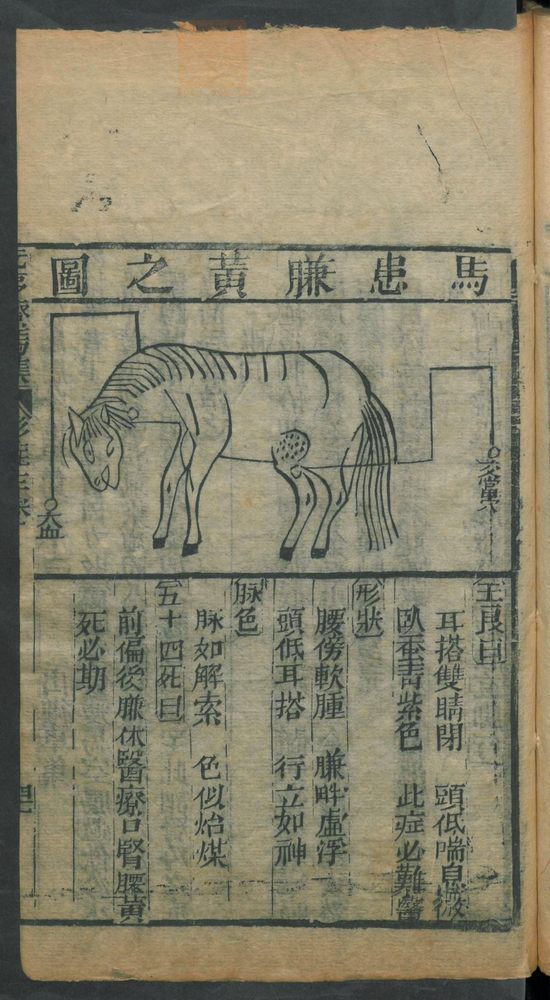 馬患膁黃之圖
大血
王良曰
耳搭雙睛閉 頭低喘息微
臥蚕青紫色 此症必難醫
形狀
腰傍軟腫 膁畔虛浮
頭低耳搭 行立如神
脉色
脉如解索 色似炲煤
五十四死曰
前偏後廉休醫療口腎腰黃
死必期